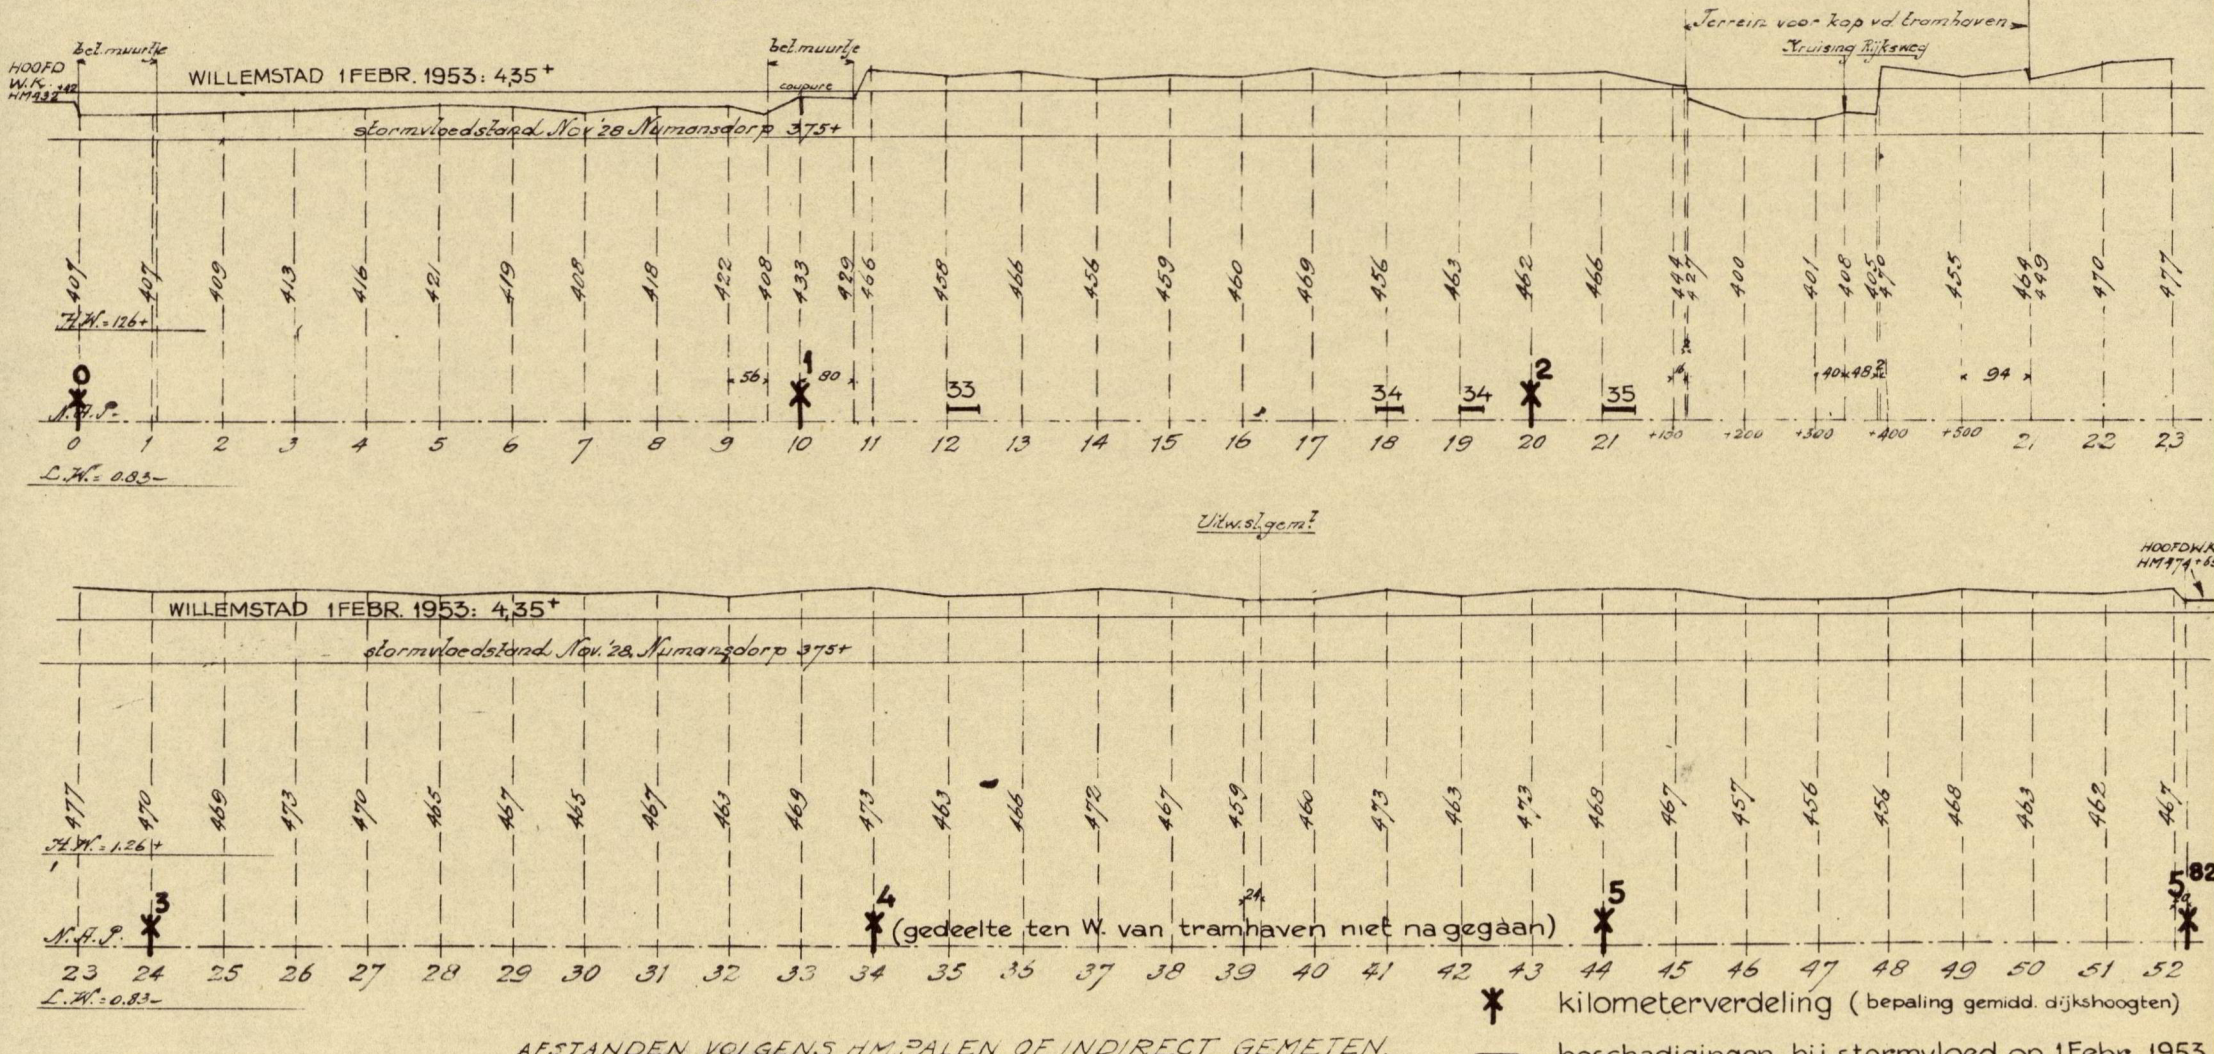 Terrein voor kop vd. tramhaven
Kruising Rijksweg
bet. muurtje
bet. muurtje
HOOFD
W.K. +42
HM 432
WILLEMSTAD 1 FEBR. 1953: 4,35+
coupure
stormvloedstand Nov '28 Numansdorp 375+
407 407 409 413 416 421 419 408 418 422 408 433 429 466 458 466 456 459 460 469 456 463 462 466 444 427 400 401 408 405 470 455 464 449 470 477
H.W. = 126+
0 56 1 80 33 34 34 2 35 40 48 2 94
N.A.P.
0 1 2 3 4 5 6 7 8 9 10 11 12 13 14 15 16 17 18 19 20 21 +100 +200 +300 +400 +500 21 22 23
L.W. = 0.83-
Uitw. sl. gemt.
HOOFD W.K.
HM 474+65
WILLEMSTAD 1 FEBR. 1953: 4,35+
stormvloedstand Nov. '28 Numansdorp 375+
477 470 469 473 470 465 467 465 467 463 469 473 463 466 472 467 459 460 473 463 473 468 467 457 456 456 468 463 462 467
H.W. = 1.26+
3 4 24 5 5 82
(gedeelte ten W. van tramhaven niet nagegaan)
N.A.P.
23 24 25 26 27 28 29 30 31 32 33 34 35 36 37 38 39 40 41 42 43 44 45 46 47 48 49 50 51 52
L.W. = 0.83-
kilometerverdeling (bepaling gemidd. dijkshoogten)
AFSTANDEN VOLGENS HM.PALEN OF INDIRECT GEMETEN.
beschadigingen bij stormvloed op 1 Febr. 1953